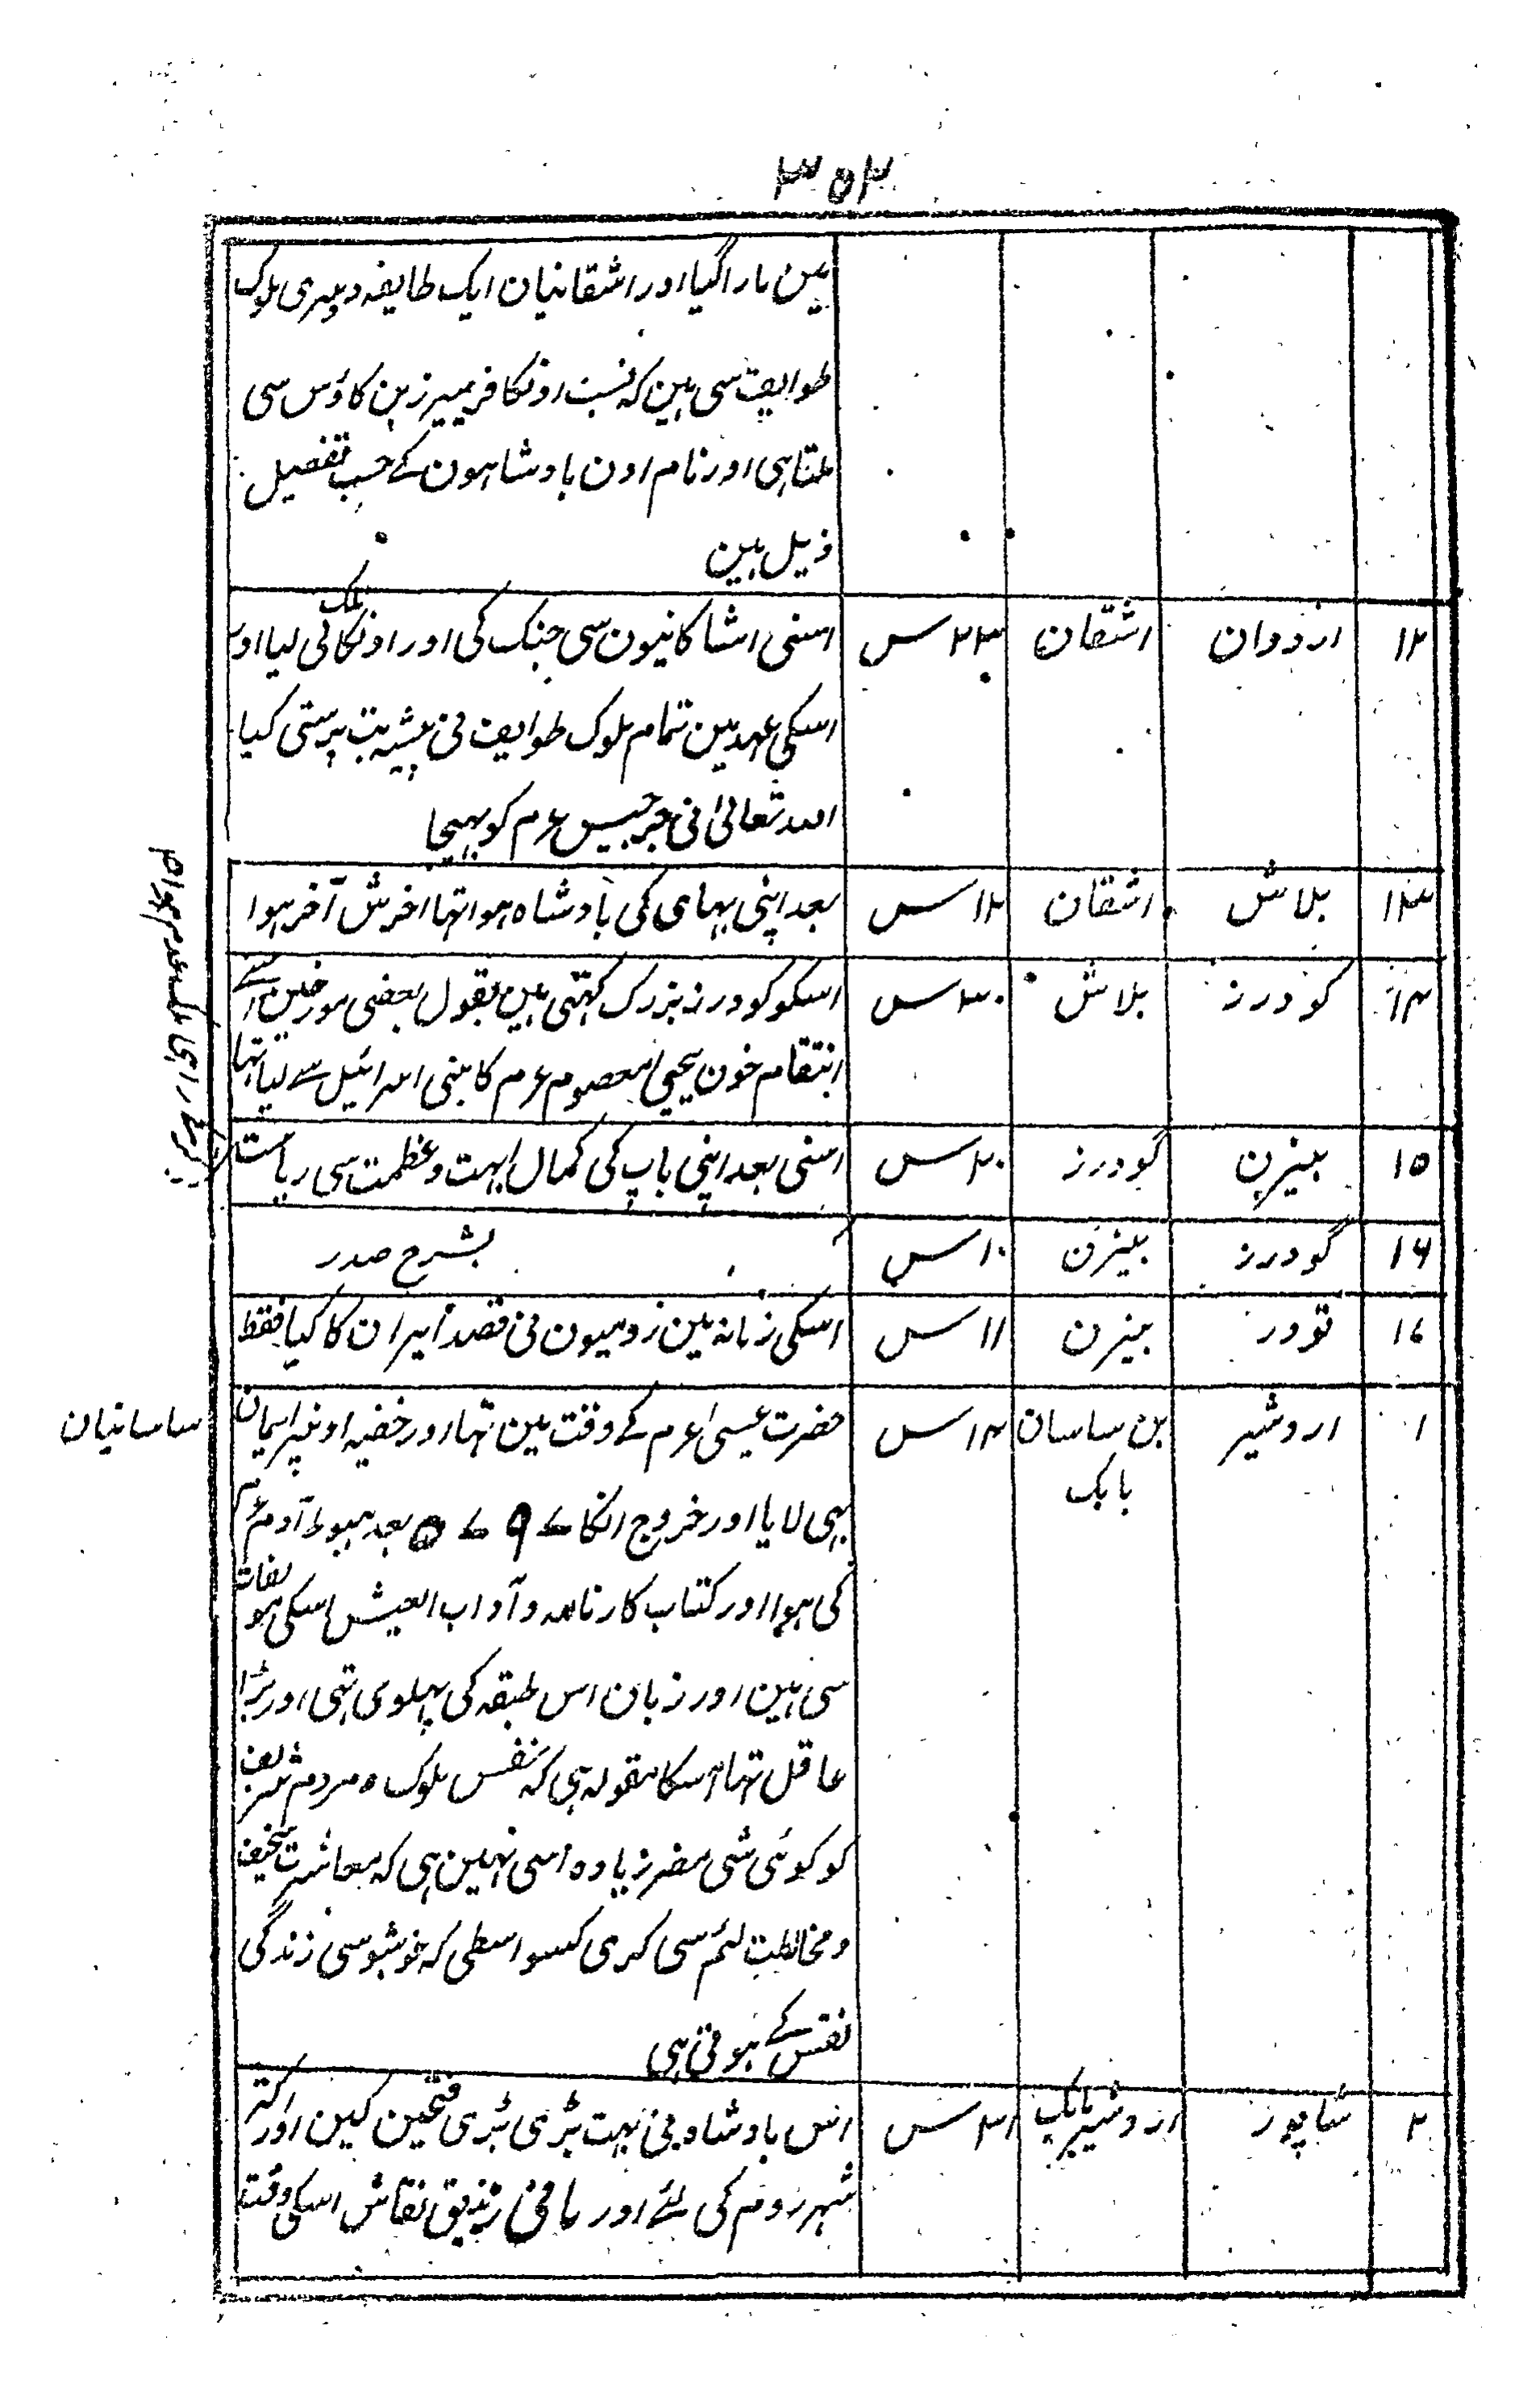 ۳۵۲
مین مارا گیا اور اشقانیان ایک طایفہ دوسری ملوک
طوایف سی ہین کہ نسبت اونکا فریبرز بن کاؤس سی
ملتا ہی اور نام اون بادشاہون کے حسب تفصیل
ذیل ہین
۱۲ اردوان اشقان ۲۳س اسنی اشکانیون سی جنک کی اور اونکا ملک لی لیا اور
اسکی عہد مین تمام ملوک طوایف نی پیشہ بت پرستی کیا
اللہ تعالیٰ نی جرجیس عرم کو بھیجا
۱۳ بلاش اشقان ۱۲س بعد اپنی بہای کی بادشاہ ہوا تہا اخرش آخر ہوا
۱۴ کودرز بلاش ۳۰س اسکو کودرز بزرک کہتی ہین بقول بعضی مورخین اسنے
انتقام خون یحییٰ معصوم عرم کا بنی اسرائیل سے لیا تہا
۱۵ بیژن گودرز ۲۰س اسنی بعد اپنی باپ کی کمال ابہت و عظمت سی ریاست
کرکے راہی ملک عدم ہوا
۱۶ گودرز بیژن ۱۰س بشرح صدر
۱۷ نودر بیژن ۱۱س اسکی زمانہ مین رومیون نی قصد ایران کا کیا فقط
ساسانیان
۱ اردشیر بن ساسان ۱۴س حضرت عیسیٰ عرم کے وقت مین تہا اور خفیہ اونپر ایمان
بابک
بہی لایا اور خروج انکا ۵۷۹۷ بعد ہبوط آدم عرم
کی ہوا اور کتاب کارنامہ و آداب العیش اسکی مولفات
سی ہین اور زبان اس طبقہ کی پہلوی تہی اور بڑا
عاقل تہا اسکا مقولہ ہی کہ نفس ملوک و مردم شریف
کو کوئی شی مضر زیادہ اسی نہین ہی کہ معاشرت سخیف
و مخالطت لئم سی کری کسواسطی کہ خوشبو سی زندگی
نفس کے ہوتی ہی
۲ شاپور اردشیر بابک ۳۱س اس بادشاہ نی بہت بڑی بڑی فتحین کین اور اکثر
شہر روم کی لئے اور مانی زندیق نقاش اسکی وقت